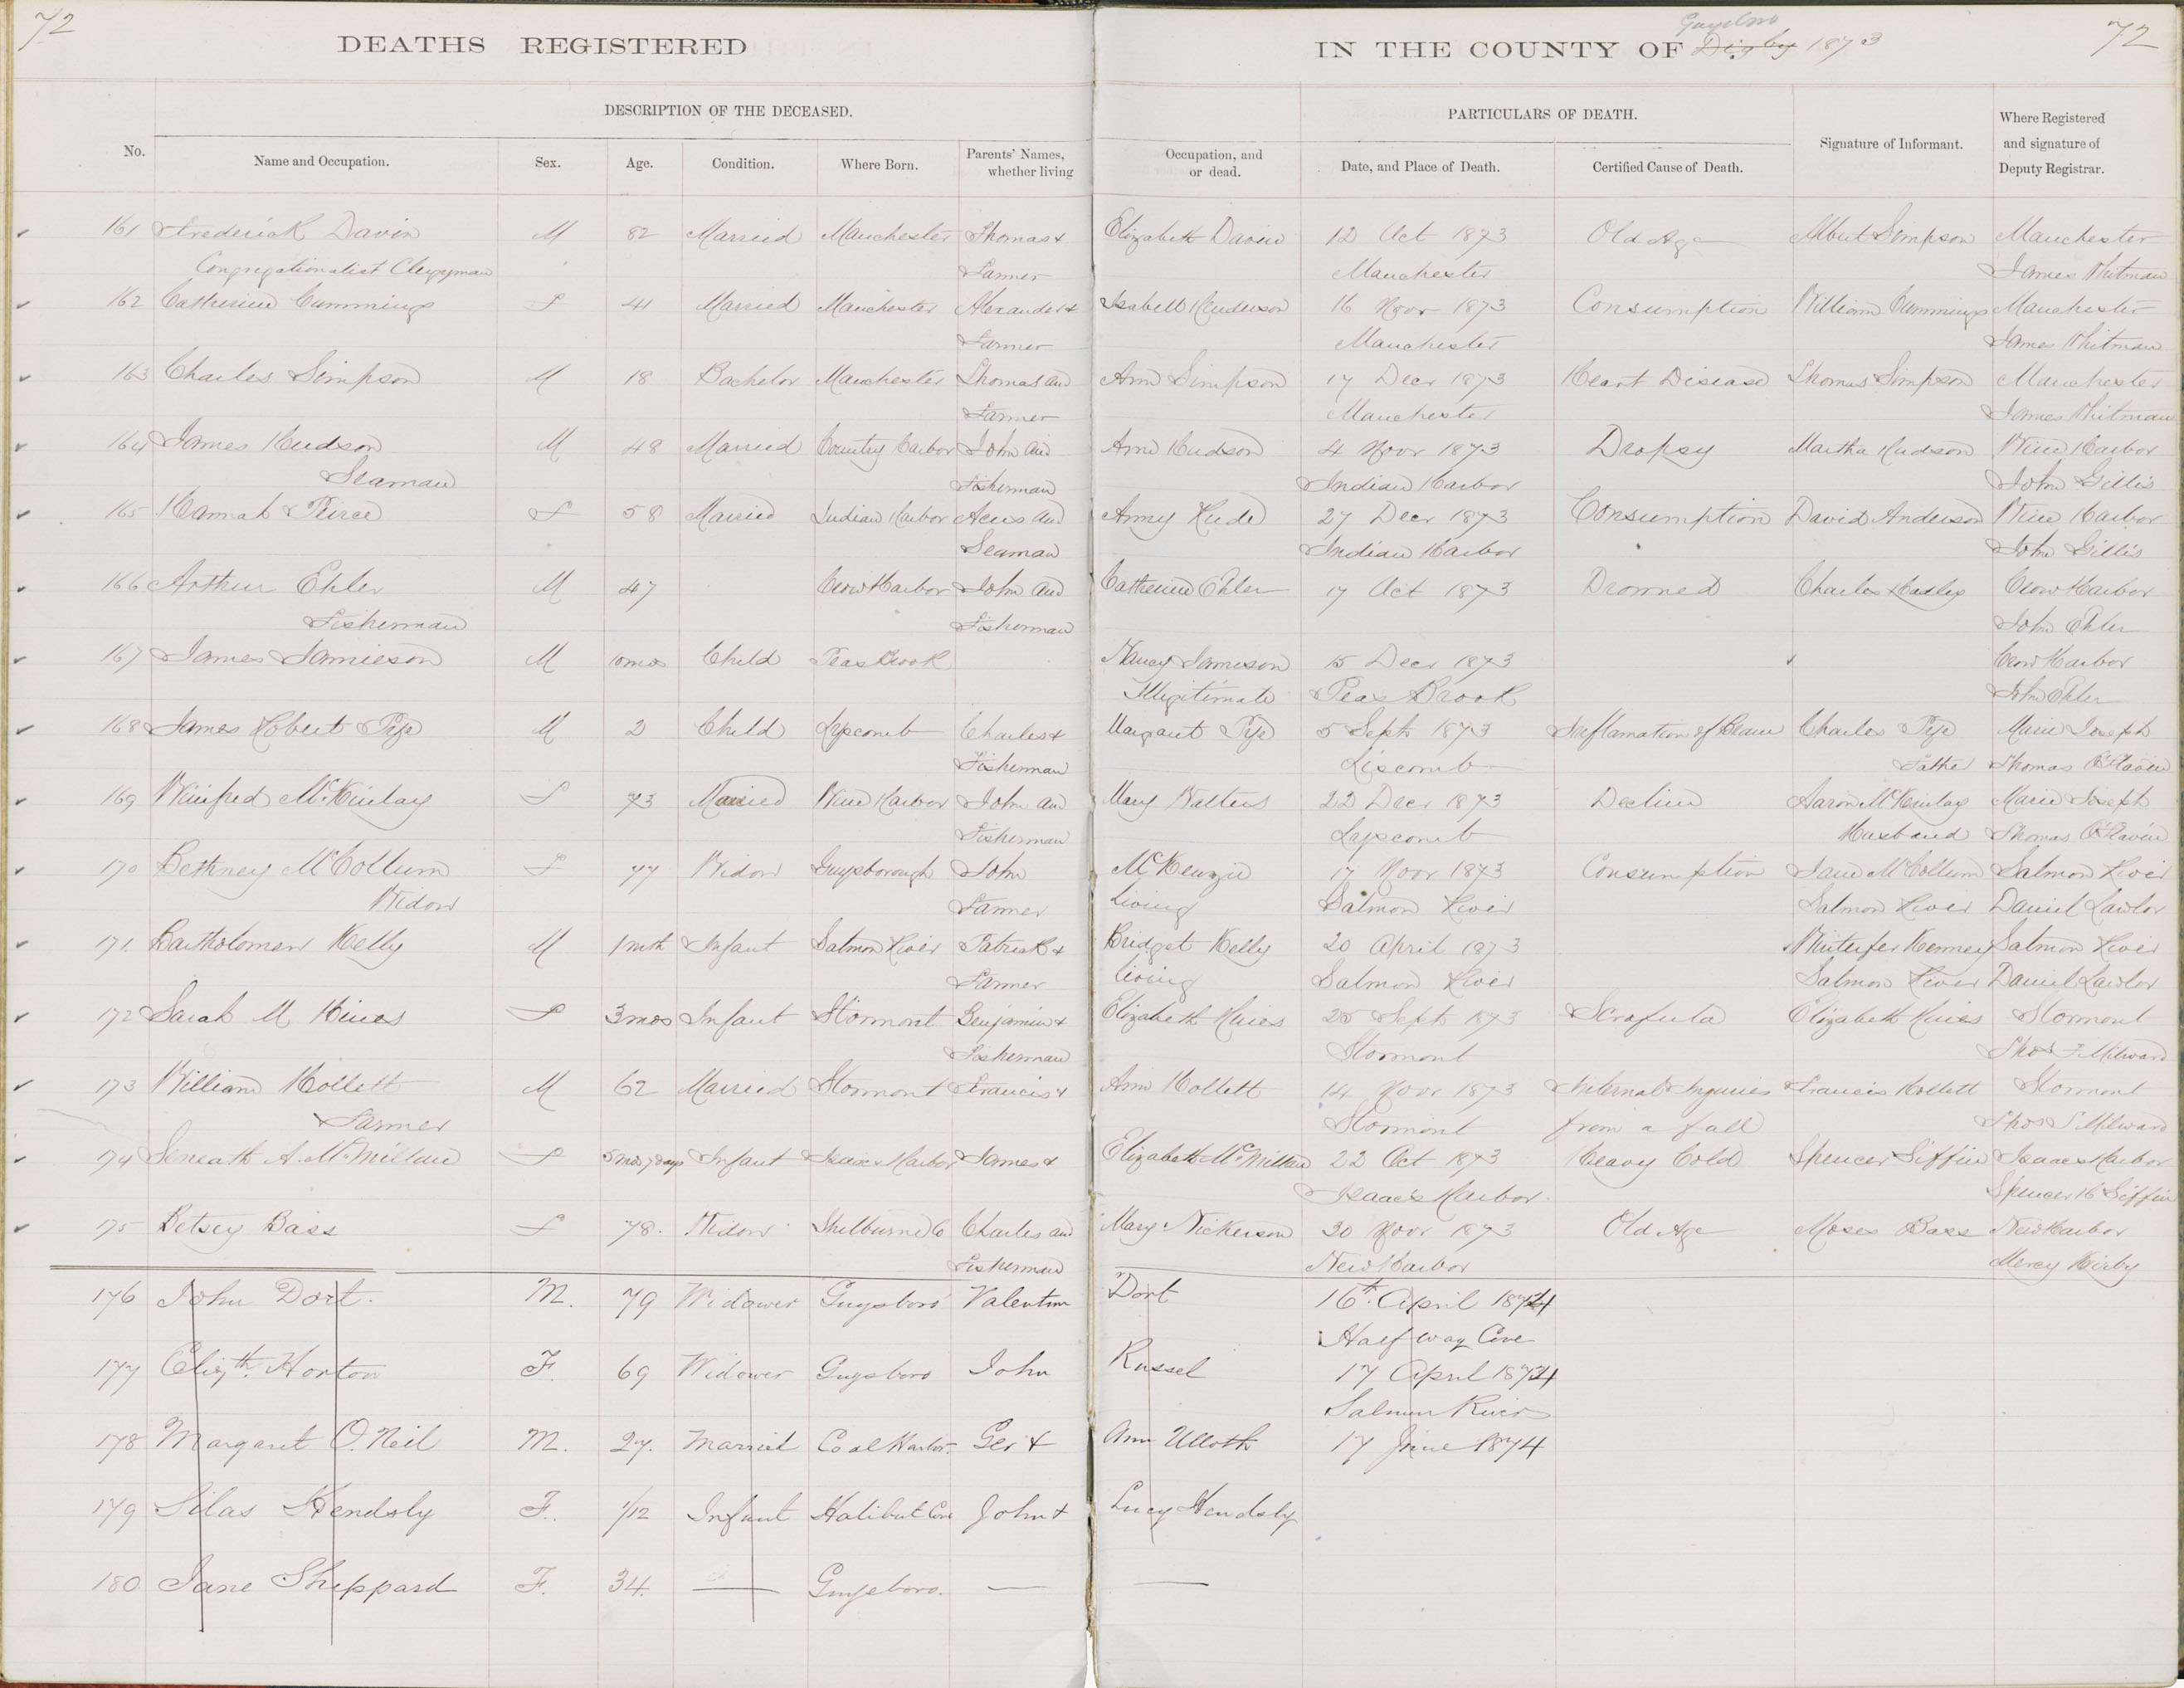 72
DEATHS REGISTERED
IN THE COUNTY OF Digby 1873
Guysboro
72
DESCRIPTION OF THE DECEASED.
PARTICULARS OF DEATH.
No. Name and Occupation. Sex. Age. Condition. Where Born. Parents' Names, whether living
Occupation, and or dead. Date, and Place of Death. Certified Cause of Death. Signature of Informant. Where Registered and signature of Deputy Registrar.
161 Frederick Davin M 82 Married Manchester Thomas & Elizabeth Davin 12 Oct 1873 Old Age Albert Simpson Manchester
Congregationalist Clergyman Farmer Manchester James Whitman
162 Catherine Cummings F 41 Married Manchester Alexander & Isabell Henderson 16 Novr 1873 Consumption William Cummings Manchester
Farmer Manchester James Whitman
163 Charles Simpson M 18 Bachelor Manchester Thomas and Ann Simpson 17 Decr 1873 Heart Disease Thomas Simpson Manchester
Farmer Manchester James Whitman
164 James Hudson M 48 Married Country Harbor John and Ann Hudson 4 Novr 1873 Dropsy Martha Hudson Wine Harbor
Seaman Fisherman Indian Harbor John Gillis
165 Hannah Peirce F 58 Married Indian Harbor and Amy 27 Decr 1873 Consumption David Anderson Wine Harbor
Seaman Indian Harbor John Gillis
166 Arthur Ehler M 47 Crow Harbor John and Catherine Ehler 17 Oct 1873 Drowned Charles Hadley Crow Harbor
Fisherman Fisherman John Ehler
167 James Jamieson M 10 mos Child Peas Brook Nancy Jamieson 15 Decr 1873 Crow Harbor
Illegitimate Peas Brook John Ehler
168 James Robert Pye M 2 Child Lipscomb Charles & Margaret Pye 5 Sept 1873 Inflamation of Brain Charles Pye Marie Joseph
Fisherman Liscomb Father Thomas O'Flavin
169 Winifred McKinlay F 73 Married Wine Harbor John and Mary Walters 22 Decr 1873 Decline Aaron McKinlay Marie Joseph
Fisherman Lipscomb Husband Thomas O'Flavin
170 Bethney McCollum F 77 Widow Guysborough John McKenzie 17 Novr 1873 Consumption Jane McCollum Salmon River
Widow Farmer living Salmon River Salmon River Daniel Lawlor
171 Bartholomew Kelly M 1 mth Infant Salmon River Patrick & Bridget Kelly 20 April 1873 Kenney Salmon River
Farmer living Salmon River Salmon River Daniel Lawlor
172 Sarah M Hines F 3 mos Infant Stormont Benjamin & Elizabeth Hines 25 Sept 1873 Scrofula Elizabeth Hines Stormont
Fisherman Stormont Thos Milward
173 William Hollett M 62 Married Stormont Francis & Ann Hollett 14 Novr 1873 Internal Injuries Francis Hollett Stormont
Farmer Stormont from a fall Thos Milward
174 Seneath A. McMillan F 5 mos 7 days Infant Isaacs Harbor James & Elizabeth McMillan 22 Oct 1873 Heavy Cold Spencer Giffin Isaacs Harbor
Isaac's Harbor Spencer H Giffin
175 Betsey Bass F 78 Widow Shelburne Co Charles and Mary Nickerson 30 Novr 1873 Old Age Moses Bass New Harbor
Fisherman New Harbor Mercy Kirby
176 John Dort. M. 79 Widower Guysboro Valentin Dort 16th April 1874
Half way Cove
177 Elizth. Horton F. 69 Widower Guysboro John Russel 17 April 1874
Salmon River
178 Margaret O. Neil M. 27. Married Coal Harbor Geo & Ann Ulloth 17 June 1874
179 Silas Hendsly F. 1/12 Infant Halibut Cove John & Lucy Hendsly
180 Jane Sheppard F. 34. — Guysboro. — —